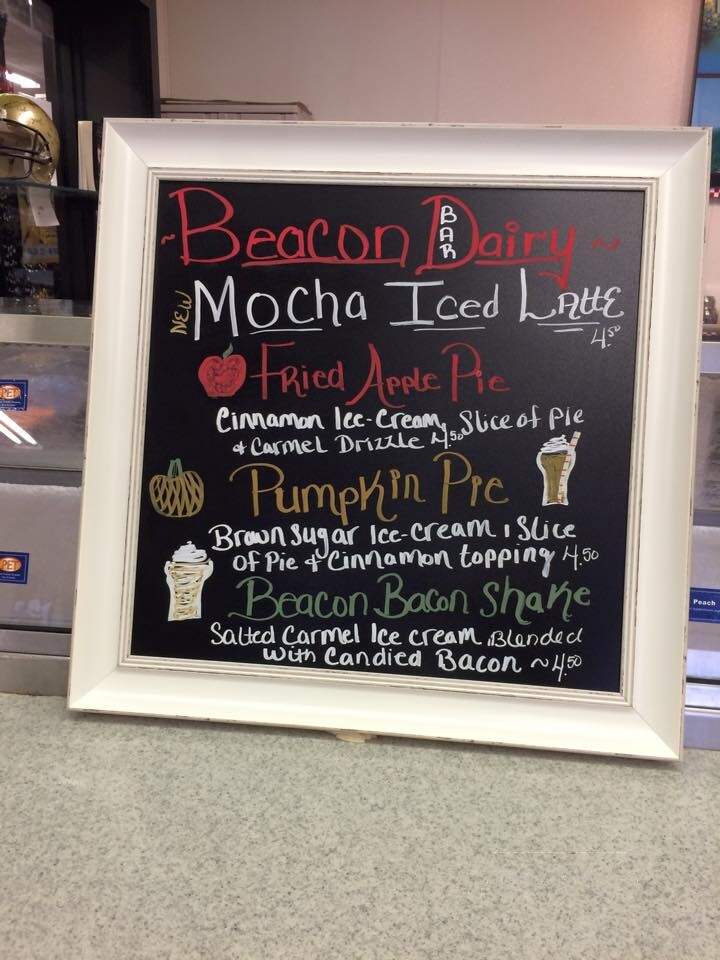 ~Beacon Dairy~
BAR
NEW
Mocha Iced Latte
4.50
Fried Apple Pie
Cinnamon Ice-Cream, Slice of Pie
+ Carmel Drizzle 4.50
Pumpkin Pie
Brown Sugar Ice-cream, Slice
of Pie + Cinnamon topping 4.50
Beacon Bacon Shake
Salted Carmel Ice cream, Blended
with Candied Bacon ~4.50
Peach